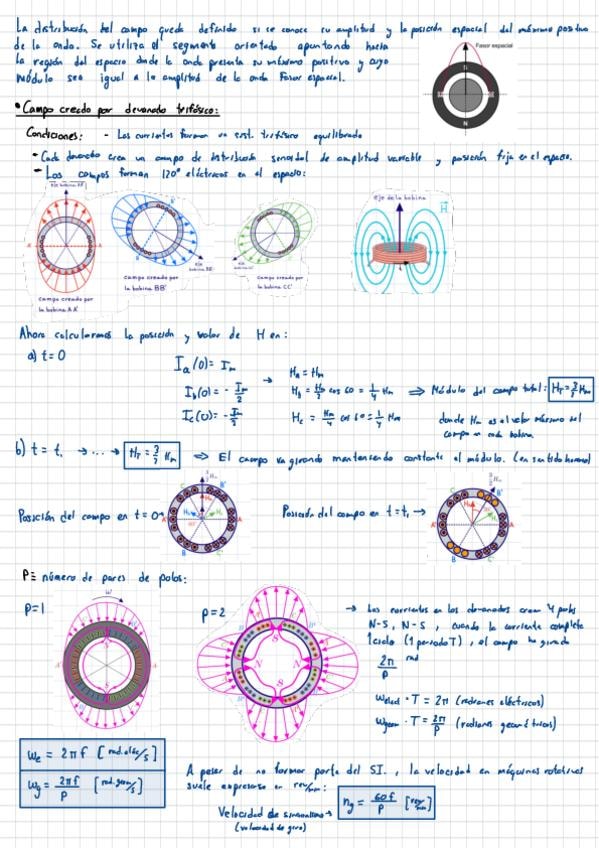 La distribución del campo queda definido si se conoce su amplitud y la posición espacial del máximo positivo
de la onda. Se utiliza el segmento orientado apuntando hacia
la región del espacio donde la onda presenta su máximo positivo y cuyo
módulo sea igual a la amplitud de la onda Fasor espacial.
Fasor espacial
• Campo creado por devanado trifásico:
Condiciones: - Las corrientes forman un sist. trifásico equilibrado
- Cada devanado crea un campo de distribución senoidal de amplitud variable y posición fija en el espacio.
- Los campos forman 120° eléctricos en el espacio:
Eje bobina AA'
eje de la bobina
H
campo creado por
la bobina AA'
campo creado por
la bobina BB'
campo creado por
la bobina CC'
Ahora calcularemos la posición y valor de H en:
a) t=0
Ia(0) = Im
Ib(0) = - Im/2
Ic(0) = - Im/2
→
Ha = Hm
Hb = Hm/2 cos 60 = 1/4 Hm
Hc = Hm/4 cos 60 = 1/4 Hm
⇒ Módulo del campo total: HT = 3/2 Hm
donde Hm es el valor máximo del
campo en cada bobina.
b) t = t1 → ... → HT = 3/2 Hm ⇒ El campo va girando manteniendo constante el módulo. (en sentido horario)
Posición del campo en t=0 →
Posición del campo en t=t1 →
P ≡ número de pares de polos:
P=1
P=2
→ Las corrientes en los devanados crean 4 polos
N-S, N-S, cuando la corriente completa
1 ciclo (1 periodo T), el campo ha girado
2π/P rad
ωelect · T = 2π (radianes eléctricos)
ωgeom · T = 2π/P (radianes geométricos)
ωe = 2πf [rad.eléc/s]
ωg = 2πf/P [rad.geom/s]
A pesar de no formar parte del SI., la velocidad en máquinas rotativas
suele expresarse en rev/min:
Velocidad de sincronismo →
(velocidad de giro)
ng = 60f/P [rev/min]